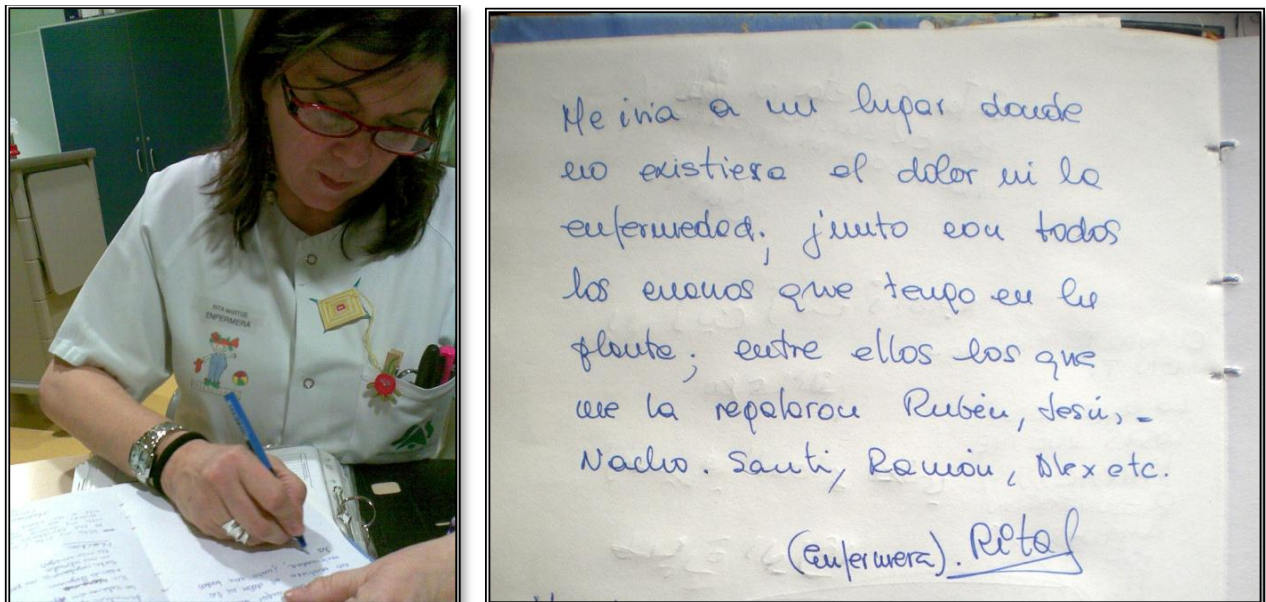 ENFERMERA
Me iria a un lugar donde
no existiera el dolor ni la
enfermedad; junto con todos
los enanos que tengo en la
planta; entre ellos los que
me la regalaron Rubén, Jesús,-
Nacho. Santi, Ramón, Alex etc.
(enfermera). Rita